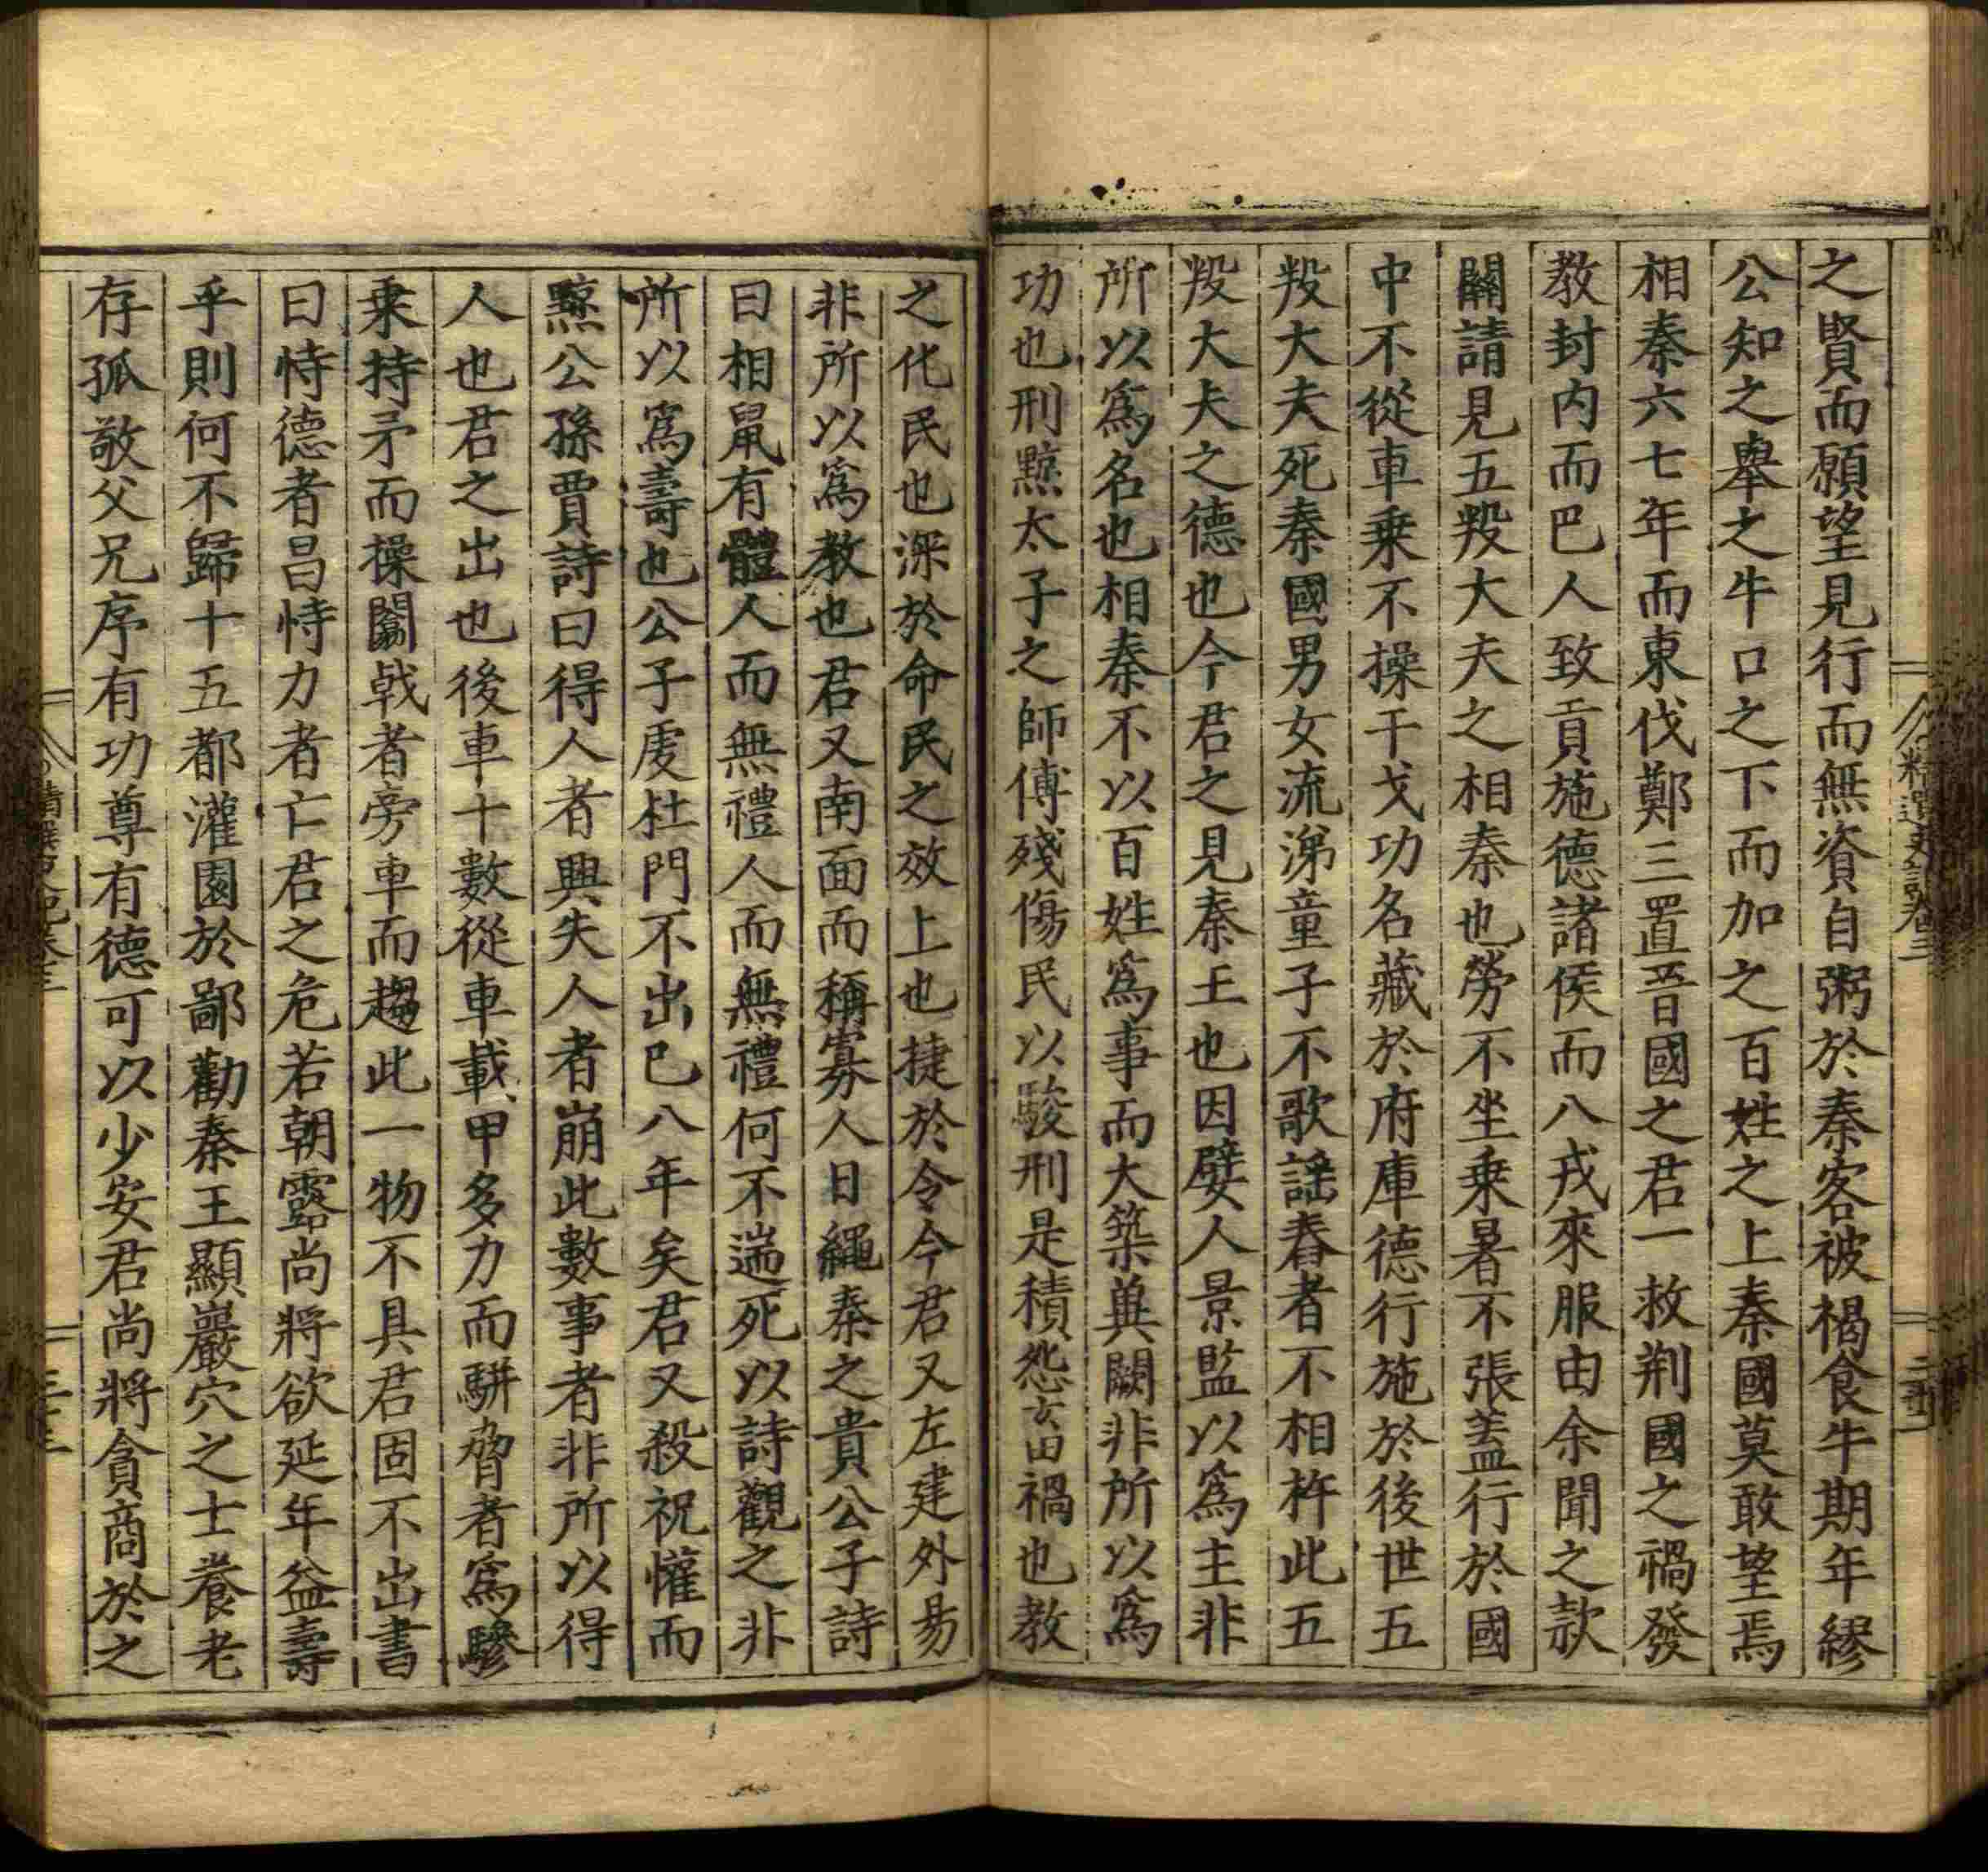 之賢而願望見行而無資自粥於秦客被褐食牛期年繆
公知之舉之牛口之下而加之百姓之上秦國莫敢望焉
相秦六七年而東伐鄭三置晉國之君一救荆國之禍發
教封内而巴人致貢施德諸侯而八戎來服由余聞之款
關請見五羖大夫之相秦也勞不坐乗暑不張盖行於國
中不從車乗不操干戈功名藏於府庫德行施於後世五
羖大夫死秦國男女流涕童子不歌謡舂者不相杵此五
羖大夫之德也今君之見秦王也因嬖人景監以爲主非
所以爲名也相秦不以百姓爲事而大築兾闕非所以爲
功也刑黥太子之師傅殘傷民以駿刑是積怨畜禍也教
之化民也深於命民之效上也捷於令今君又左建外易
非所以爲教也君又南面而稱寡人日繩秦之貴公子詩
曰相鼠有體人而無禮人而無禮何不遄死以詩觀之非
所以爲壽也公子虔杜門不出已八年矣君又殺祝懽而
黥公孫賈詩曰得人者興失人者崩此數事者非所以得
人也君之出也後車十數從車載甲多力而駢脅者爲驂
乗持矛而操闟戟者旁車而趨此一物不具君固不出書
曰恃德者昌恃力者亡君之危若朝露尚將欲延年益壽
乎則何不歸十五都灌園於鄙勸秦王顯巖穴之士養老
存孤敬父兄序有功尊有德可以少安君尚將貪商於之